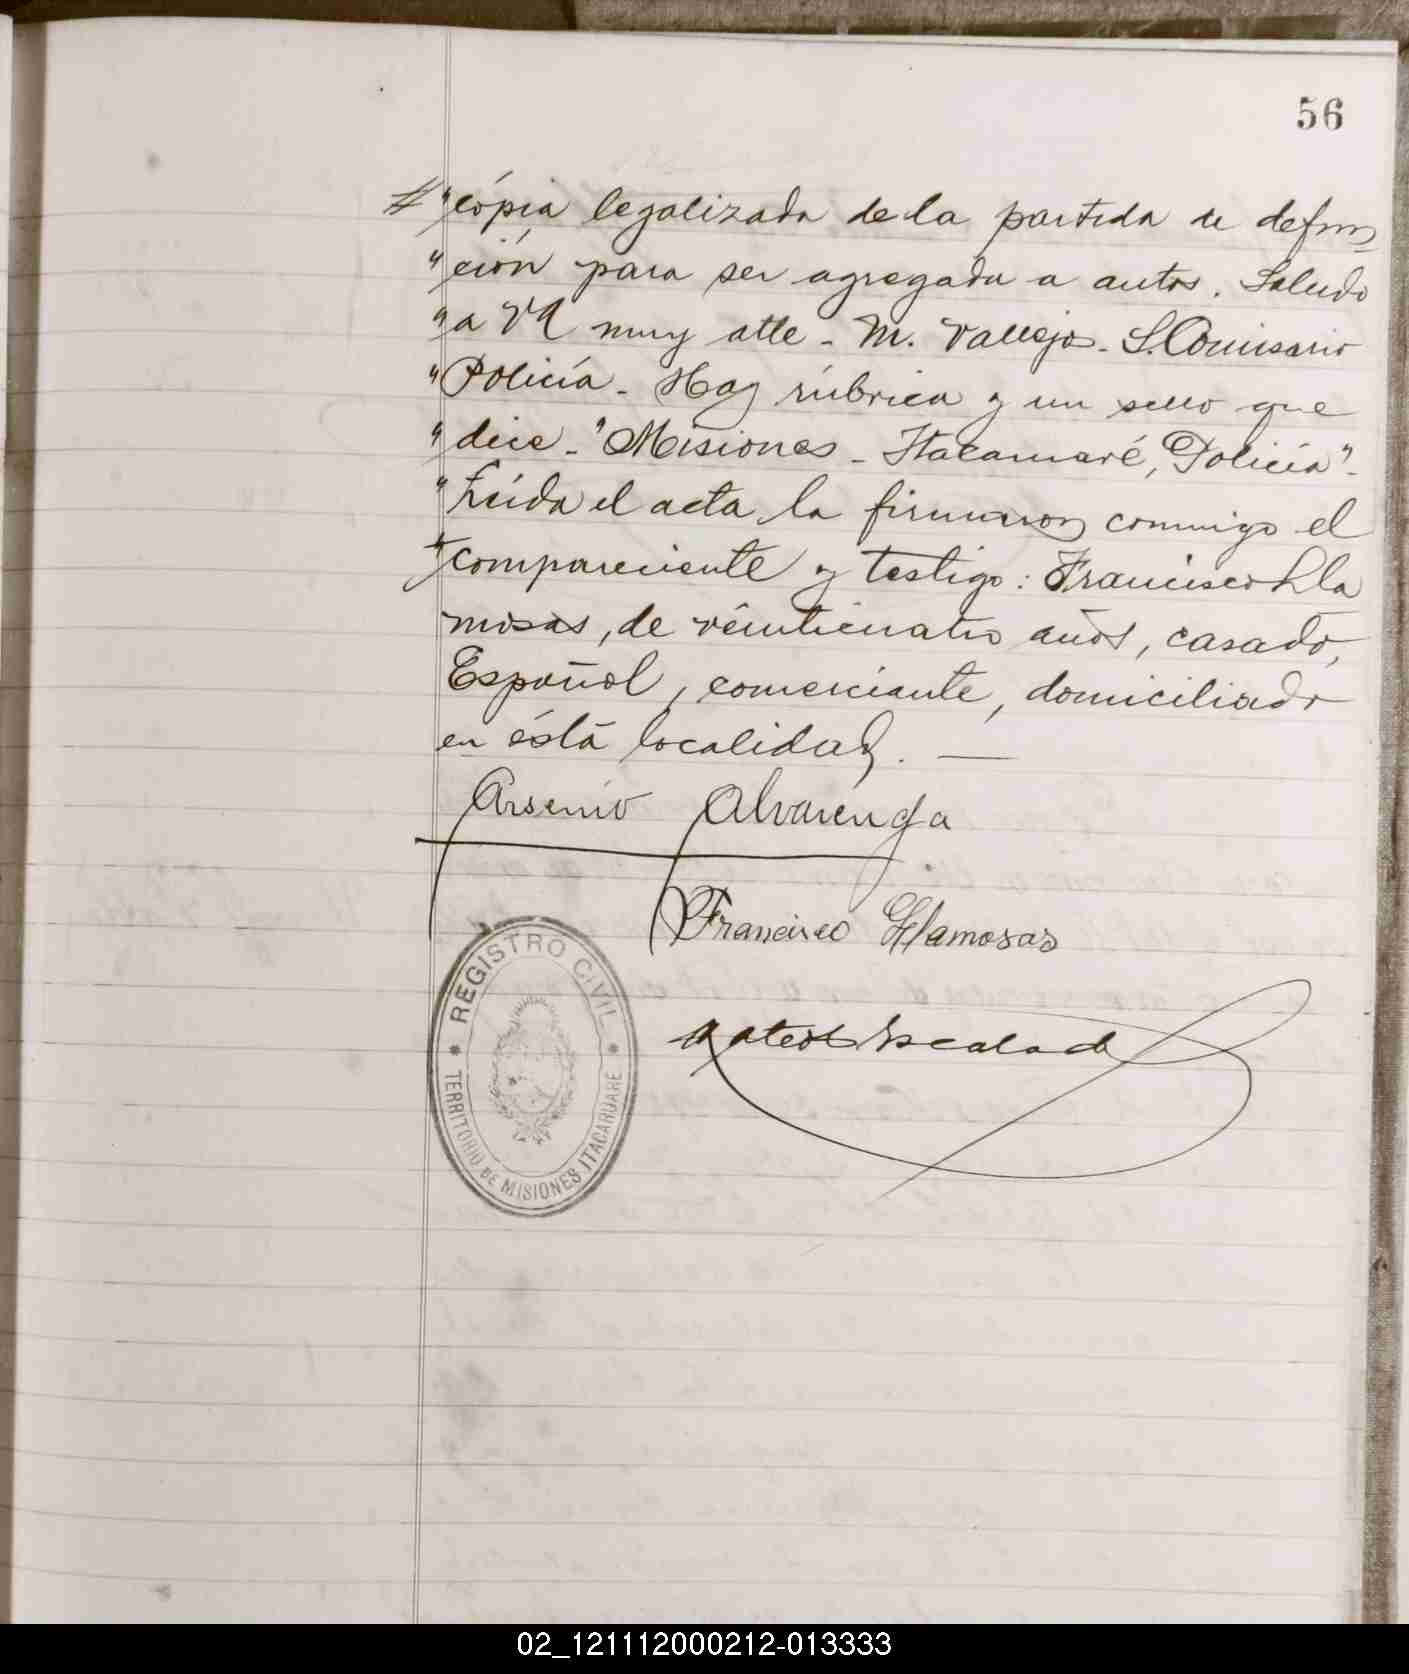 56
"cópia legalizada de la partida de defun
"ción para ser agregada a autos. Saludo
"a Vd muy atte - M. Vallejos - S. Comisario
"Policía - Hay rúbrica y un sello que
"dice - "Misiones - Itacaruaré, Policía" -
"Leída el acta la firmaron conmigo el
"compareciente y testigo: Francisco Lla
mosas, de veinticuatro años, casado,
Español, comerciante, domiciliado
en ésta localidad. —
Arsenio Alvarenga
Francisco Llamosas
Mateo Escalada
REGISTRO CIVIL
TERRITORIO DE MISIONES ITACARUARE
02_121112000212-013333